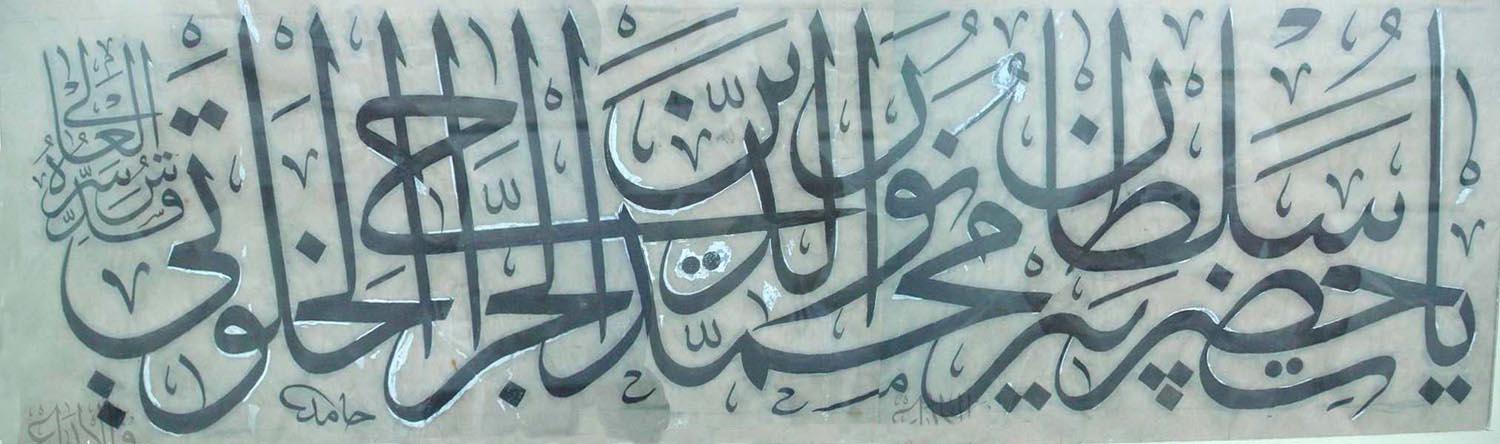 يا حضرت پير سلطان محمد نور الدين الجراحي الخلوتي
قدس سره العالى
حامد